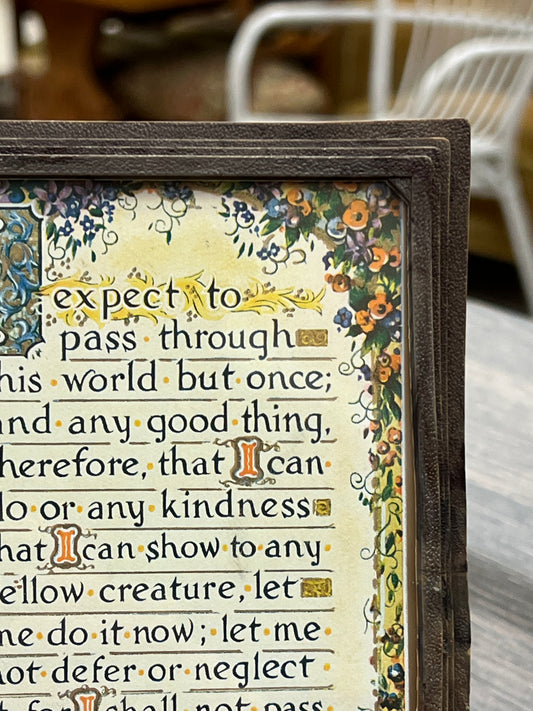 expect to
pass · through
his · world · but · once;
nd any good thing,
herefore, · that I can ·
o · or · any · kindness
hat I can · show · to · any ·
ellow · creature, · let
me · do · it now; · let me
not · defer · or · neglect ·
t for I shall not pass